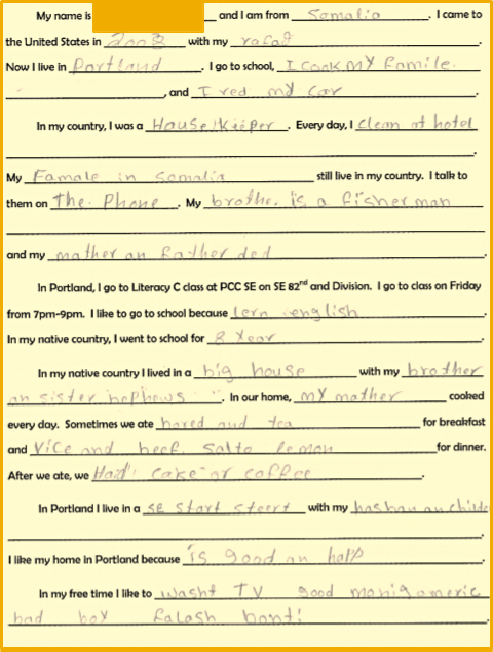 My name is and I am from Somalia. I came to
the United States in 2008 with my rafad
Now I live in Portland. I go to school, I cook My Famile.
, and I red my car.
In my country, I was a House Kieper. Every day, I clean at hotel
.
My Famale in Somalia still live in my country. I talk to
them on The Phone. My brothe. is a fisherman
and my mather an Father ded.
In Portland, I go to Literacy C class at PCC SE on SE 82nd and Division. I go to class on Friday
from 7pm-9pm. I like to go to school because lern english.
In my native country, I went to school for 8 Year.
In my native country I lived in a big house with my brother
an sister nephews. In our home, My mather cooked
every day. Sometimes we ate bared and tea for breakfast
and Vice and beef. Salto lemon for dinner.
After we ate, we Had cake or coffee.
In Portland I live in a SE Start steert with my hasban an childe
.
I like my home in Portland because is good an halp.
In my free time I like to washt TV good monigomeric
bad boy falash bont!